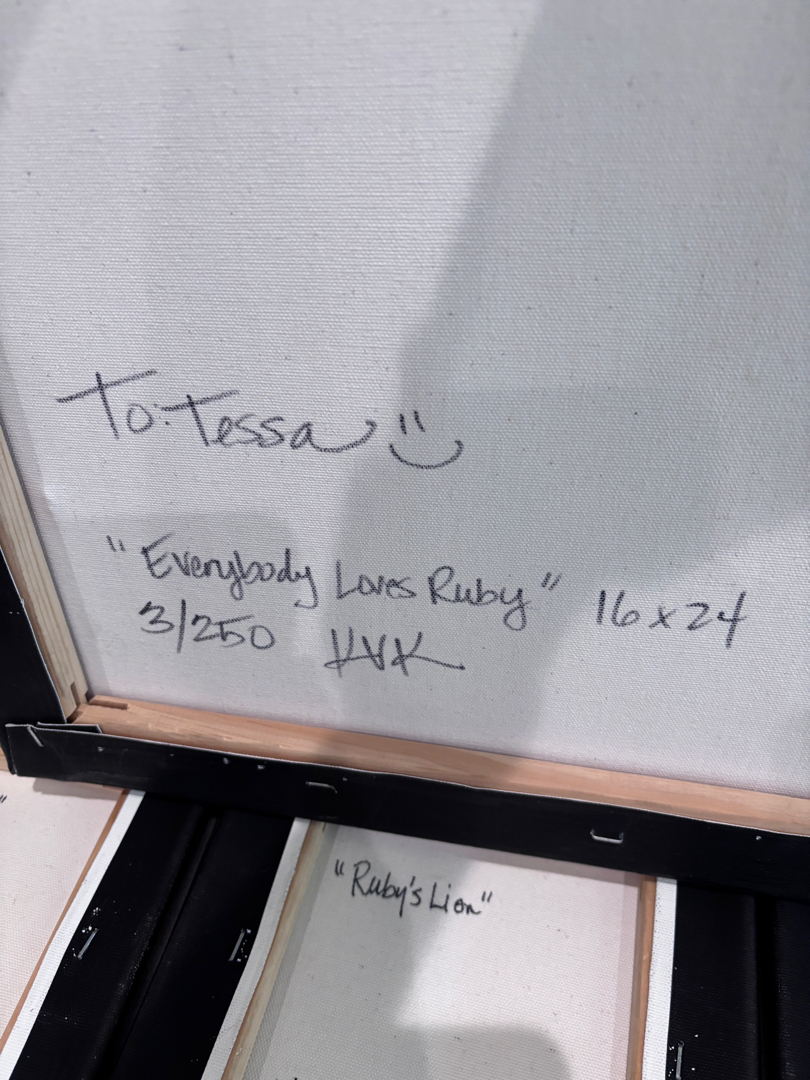 To: Tessa
"Everybody Loves Ruby" 16x24
3/250 KVK
"Ruby's Lion"